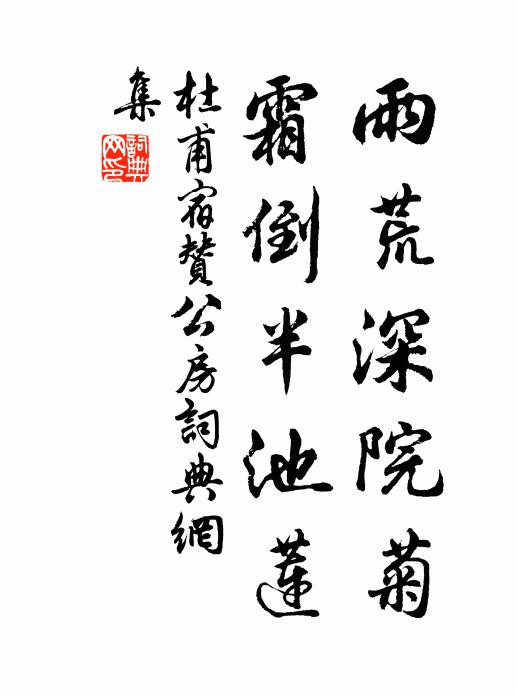 雨荒深院菊
霜倒半池蓮
杜甫宿贊公房詞典網
集
詞典
网印